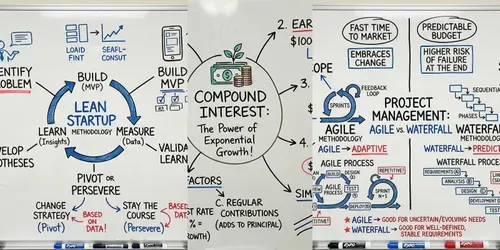 LOAID
FINT
SEAFL-
CONSUT
ENTIFY
OBLEM
BUILD
(MVP)
BUILD
MVP
LEAN
STARTUP
METHODOLOGY
LEARN
(Insights)
MEASURE
(Data)
VELOP
OTHESES
VALIDA
LEARN
PIVOT OR
PERSEVERE
CHANGE
STRATEGY
(Pivot)
BASED
ON
DATA!
STAY THE
COURSE
(Persevere)
BASED
DAT
2. EAR
$100
COMPOUND
INTEREST:
The Power of
Exponential
Growth!
3.
4.
SIM
ACTORS
ST RATE
% =
ROWTH)
C. REGULAR
CONTRIBUTIONS
(ADDS TO PRINCIPAL)
FAST TIME
TO MARKET
EMBRACES
CHANGE
PREDICTABLE
BUDGET
HIGHER RISK
OF FAILURE
AT THE END
OPE
FEEDBACK
LOOP
SPRINTS
SEQUENTIAL
PHASES
PROJECT
MANAGEMENT:
AGILE vs. WATERFALL
AGILE
METHODOLOGY
AGILE → ADAPTIVE
WATERFALL
METHO
WATERFALL → PREDIC
AGILE PROCESS
REPETITIVE!
BUILD
DESIGN
TEST
DEPLOY
SPRINT
N+1
WATERFALL
REQUIREMENTS
ANALYSIS
DESIGN
★ AGILE → GOOD FOR UNCERTAIN/EVOLVING NEEDS
★ WATERFALL → GOOD FOR WELL-DEFINED,
STABLE REQUIREMENTS